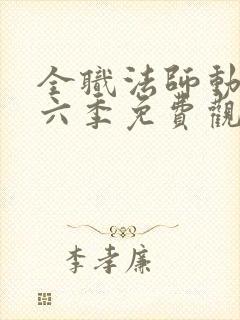 全職法師動
六季免費觀
李孝廉